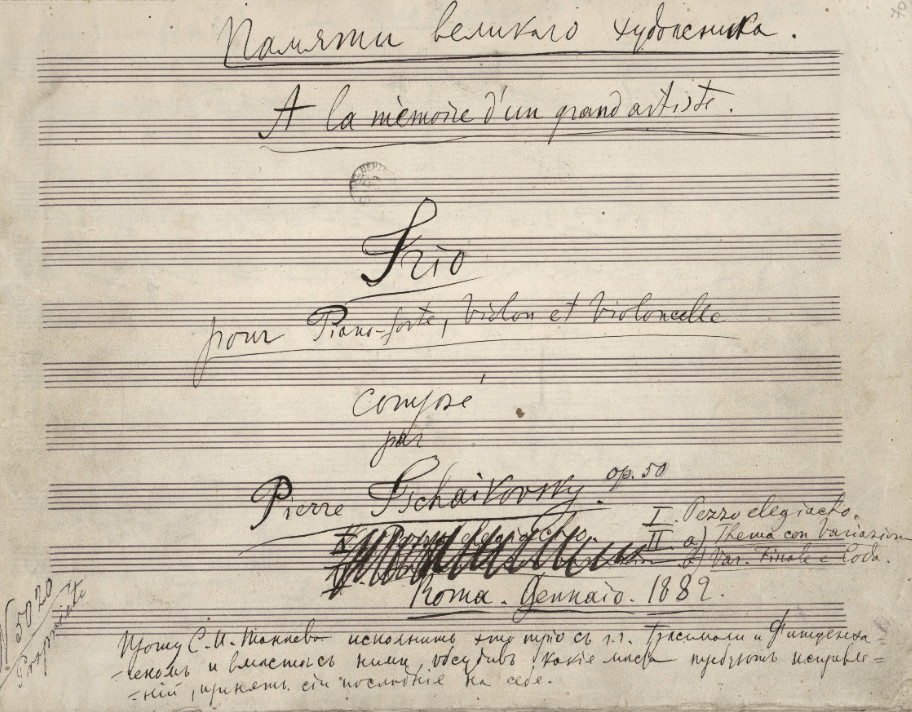 Памяти великаго художника.
A la mémoire d'un grand artiste.
Trio
pour Piano-forte, Violon et Violoncelle
composé
par
Pierre Tschaikovsky op. 50
I. Pezzo elegiacho.
II a) Thema con Variazioni
b) Var. Finale e Coda.
Roma. Gennaio. 1882.
N 5020
Прошу С. И. Танѣева исполнить это трио съ г.г. Гржимали и Фитценха-
-геномъ и вмѣстѣ съ ними, обсудивъ какія мѣста требуютъ исправле=
=ній, принять сіи послѣднія на себя.